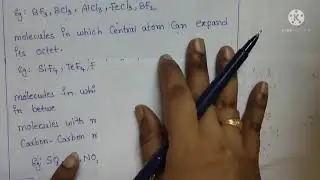 Eg: BF3, BCl3, AlCl3, FeCl3, BF3
molecules in which Central atom Can expand
its octet.
Eg: SiF4, TeF4,
molecules in
in betwe
molecules with
Carbon-Carbon
Eg: SO NO2
KINEMASTER